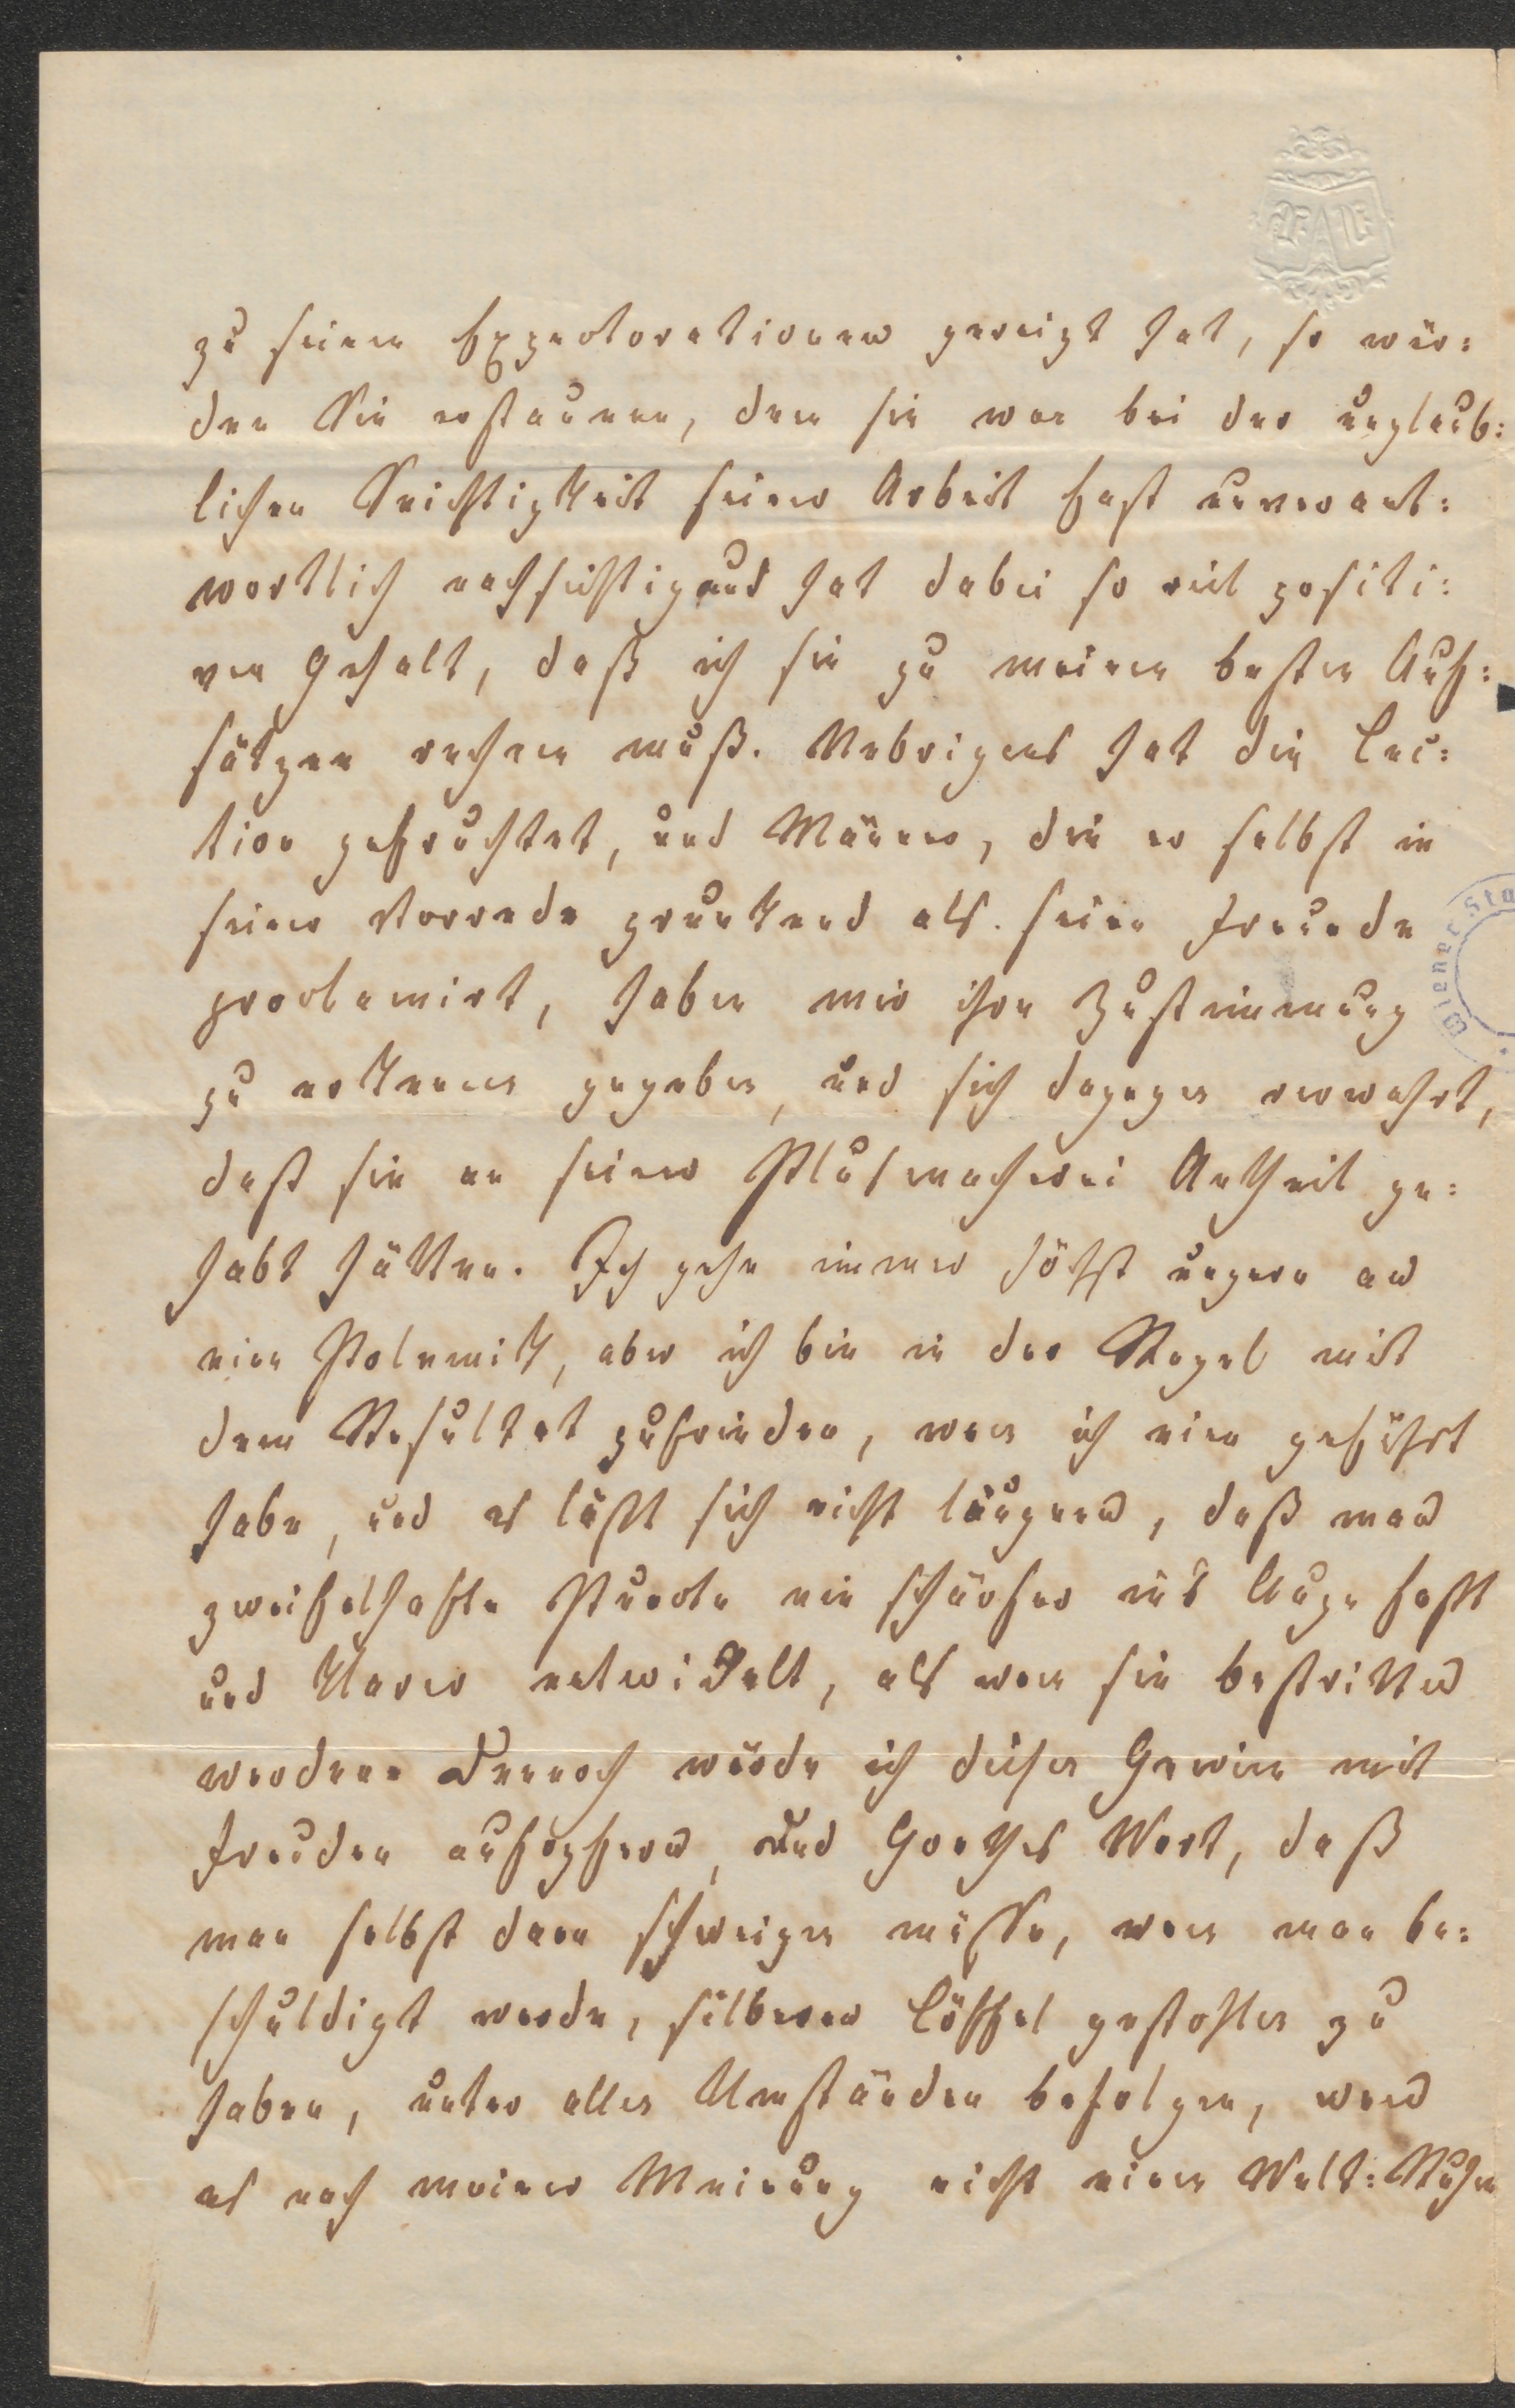 zu seinen Expectorationen gereizt hat, so wür:
den Sie erstaunen, denn sie war bei der unglaub:
lichen Seichtigkeit seiner Arbeit fast unverant:
wortlich nachsichtig und hat dabei so viel positi:
ven Gehalt, daß ich sie zu meinen besten Auf:
sätzen rechnen muß. Uebrigens hat die Lec:
tion gefruchtet, und Männer, die er selbst in
seiner Vorrede prunkend als seine Freunde
proclamirt, haben mir ihre Zustimmung
zu erkennen gegeben, und sich dagegen verwahrt,
daß sie an seiner Plusmacherei Antheil ge:
habt hätten. Ich gehe immer höchst ungern an
eine Polemik, aber ich bin in der Regel mit
dem Resultat zufrieden, wenn ich eine geführt
habe, und es läßt sich nicht läugnen, daß man
zweifelhafte Puncte nie schärfer in's Auge faßt
und klarer entwickelt, als wenn sie bestritten
werden. Dennoch würde ich diesen Gewinn mit
Freuden aufopfern, und Goethes Wort, daß
man selbst dann schweigen müsse, wenn man be:
schuldigt werde, silberne Löffel gestohlen zu
haben, unter allen Umständen befolgen, wenn
es nach meiner Meinung nicht einen Welt: Ruhm
Wiener Sta